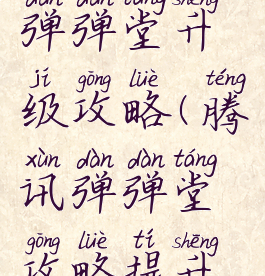 dàn dàn táng shēng
弹弹堂升
jí gōng lüè téng
级攻略(腾
xùn dàn dàn táng
讯弹弹堂
gōng lüè tí shēng
攻略提升